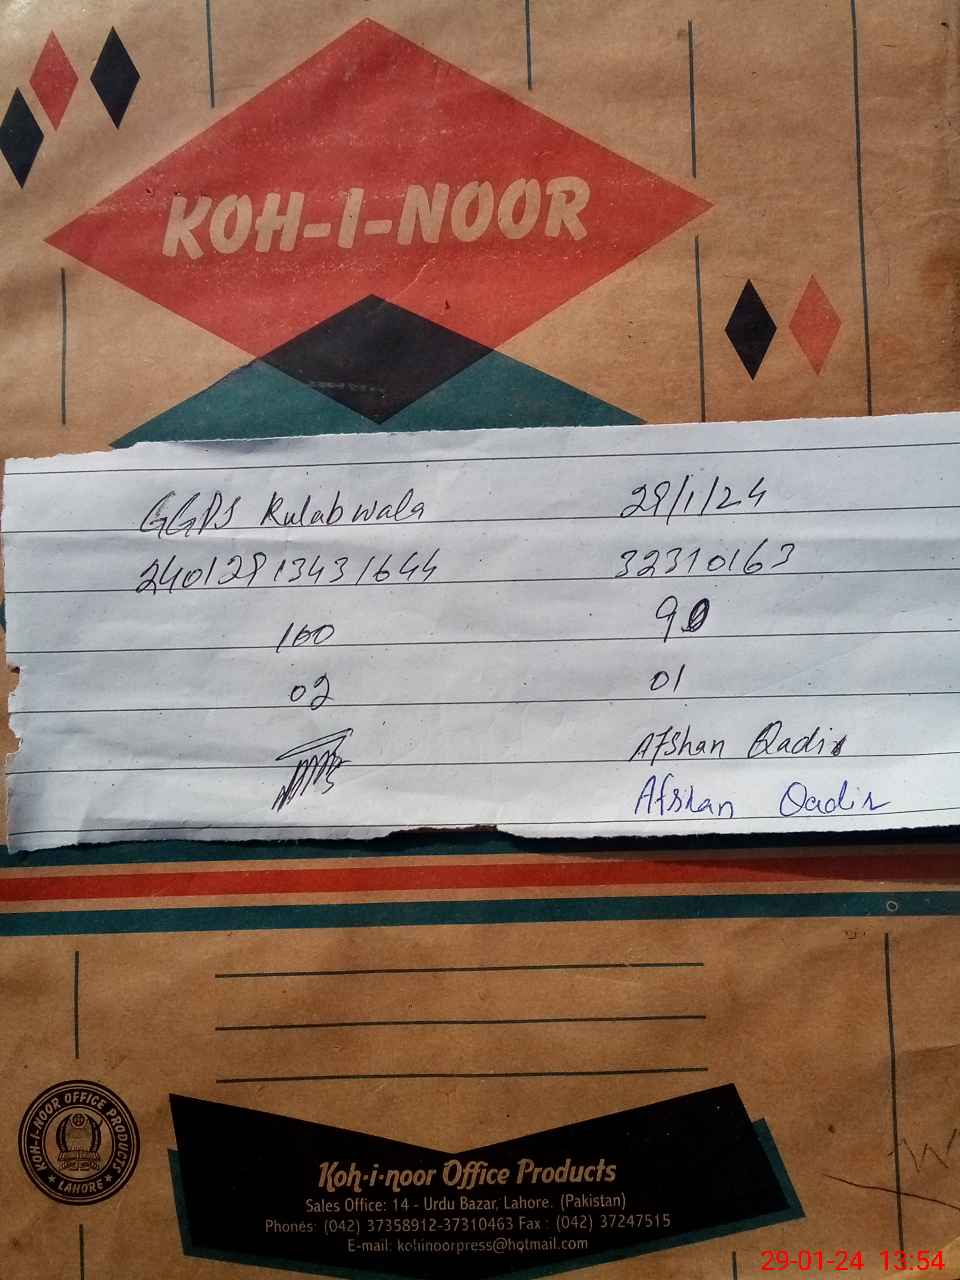 KOH-I-NOOR
GGPS Kulab wala 29/1/24
24012913431644 32310163
160 90
02 01
Afshan Qadir
Afshan Qadir
KOH-I-NOOR OFFICE PRODUCTS
★ LAHORE ★
Koh-i-noor Office Products
Sales Office: 14 - Urdu Bazar, Lahore. (Pakistan)
Phones: (042) 37358912-37310463 Fax : (042) 37247515
E-mail: kohinoorpress@hotmail.com
29-01-24 13:54